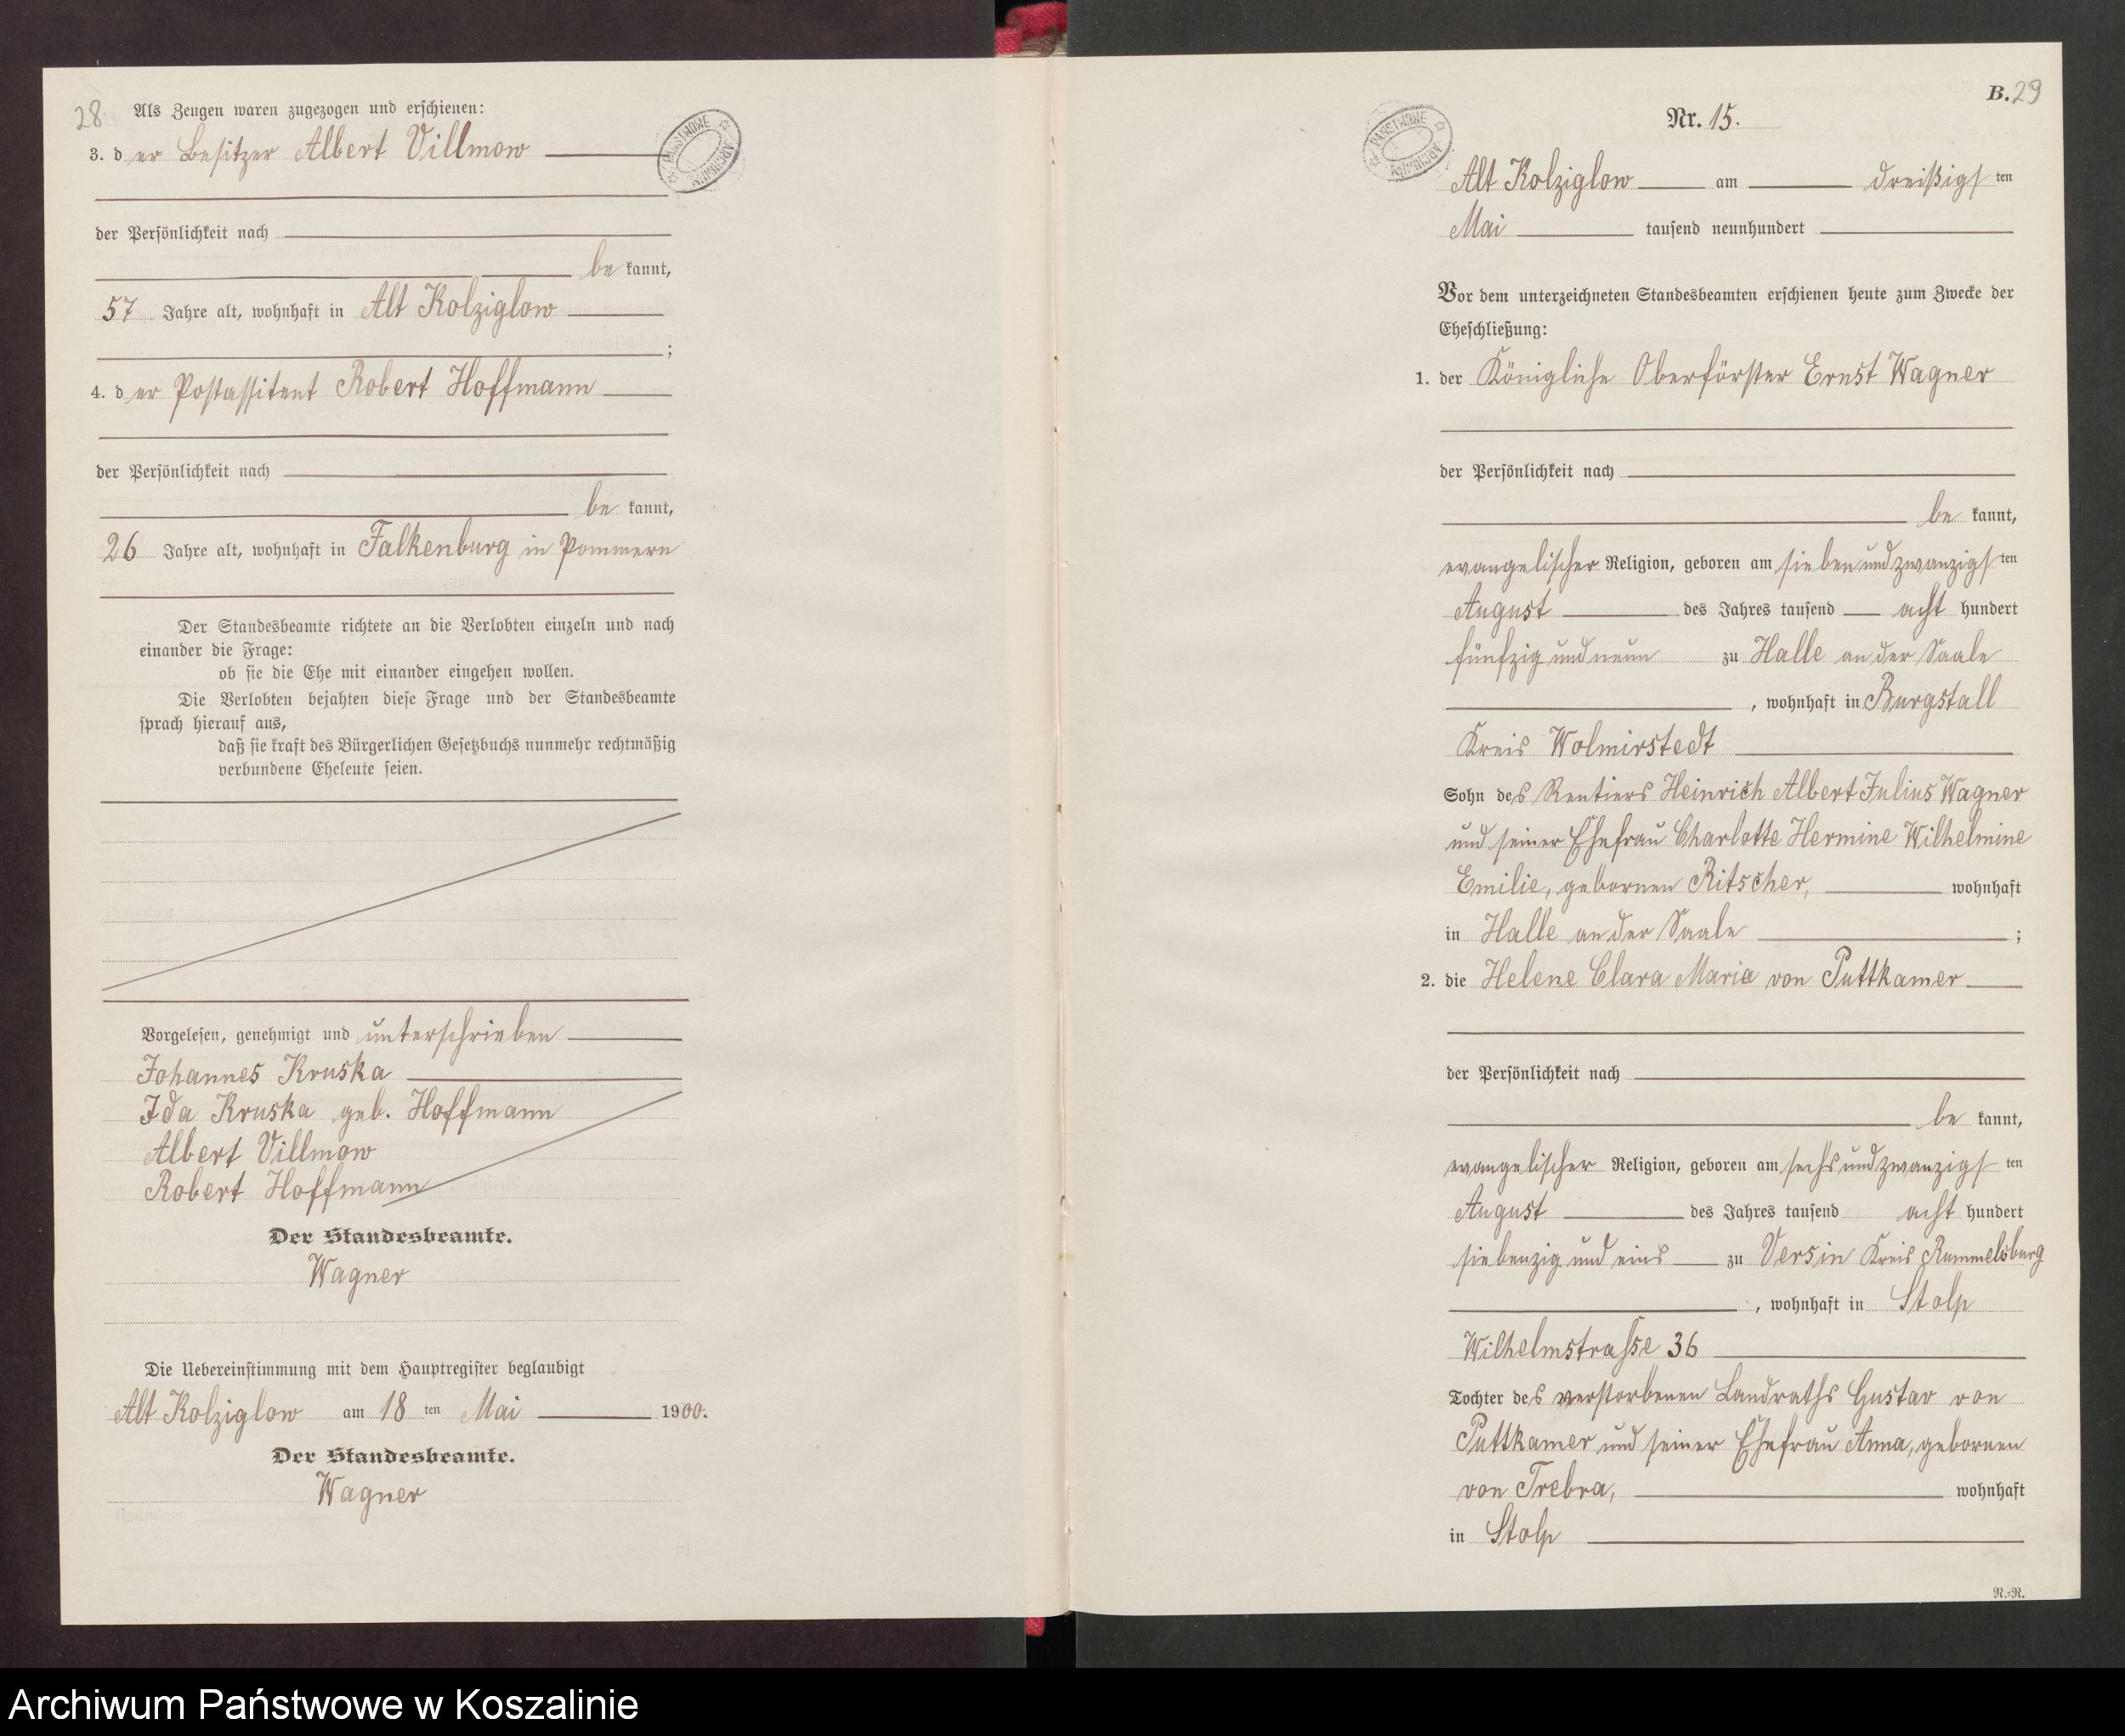 28
Als Zeugen waren zugezogen und erschienen:
3. der Besitzer Albert Villmow
der Persönlichkeit nach
be kannt,
57 Jahre alt, wohnhaft in Alt Kolziglow
;
4. der Postassitent Robert Hoffmann
der Persönlichkeit nach
be kannt,
26 Jahre alt, wohnhaft in Falkenburg in Pommern
Der Standesbeamte richtete an die Verlobten einzeln und nach
einander die Frage:
ob sie die Ehe mit einander eingehen wollen.
Die Verlobten bejahten diese Frage und der Standesbeamte
sprach hierauf aus,
daß sie kraft des Bürgerlichen Gesetzbuchs nunmehr rechtmäßig
verbundene Eheleute seien.
Vorgelesen, genehmigt und unterschrieben
Johannes Kruska
Ida Kruska geb. Hoffmann
Albert Villmow
Robert Hoffmann
Der Standesbeamte.
Wagner
Die Uebereinstimmung mit dem Hauptregister beglaubigt
Alt Kolziglow am 18 ten Mai 1900.
Der Standesbeamte.
Wagner
ARCHIWUM PAŃSTWOWE
B. 29
Nr. 15.
ARCHIWUM PAŃSTWOWE
Alt Kolziglow am dreißigsten
Mai tausend neunhundert
Vor dem unterzeichneten Standesbeamten erschienen heute zum Zwecke der
Eheschließung:
1. der Königliche Oberförster Ernst Wagner
der Persönlichkeit nach
be kannt,
evangelischer Religion, geboren am siebenundzwanzigsten
August des Jahres tausend acht hundert
fünfzig und neun zu Halle an der Saale
, wohnhaft in Burgstall
Kreis Wolmirstedt
Sohn des Rentiers Heinrich Albert Julius Wagner
und seiner Ehefrau Charlotte Hermine Wilhelmine
Emilie, gebornen Ritscher, wohnhaft
in Halle an der Saale ;
2. die Helene Clara Maria von Puttkamer
der Persönlichkeit nach
be kannt,
evangelischer Religion, geboren am sechsundzwanzigsten
August des Jahres tausend acht hundert
siebenzig und eins zu Versin Kreis Rummelsburg
, wohnhaft in Stolp
Wilhelmstrasse 36
Tochter des verstorbenen Landraths Gustav von
Puttkamer und seiner Ehefrau Anna, gebornen
von Trebra, wohnhaft
in Stolp
R.-R.
Archiwum Państwowe w Koszalinie